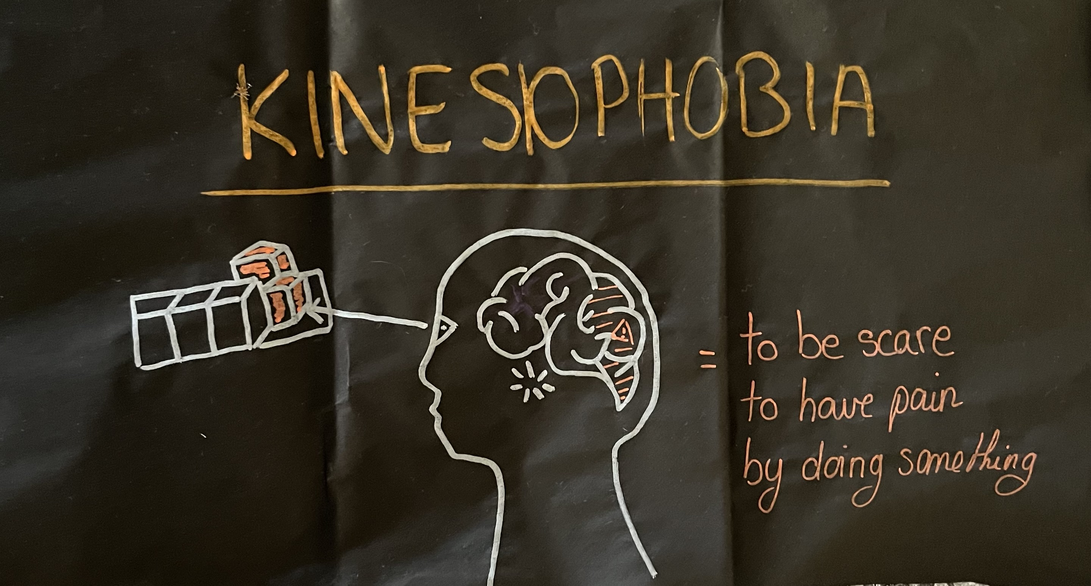 KINESIOPHOBIA
= to be scare
to have pain
by doing something